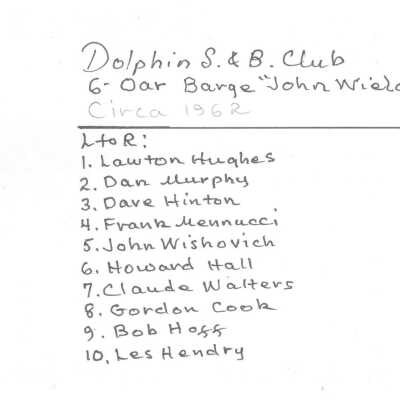 Dolphin S. & B. Club
6-Oar Barge "John Wiel
Circa 1962
L to R:
1. Lawton Hughes
2. Dan Murphy
3. Dave Hinton
4. Frank Mennucci
5. John Wishovich
6. Howard Hall
7. Claude Walters
8. Gordon Cook
9. Bob Hoff
10. Les Hendry